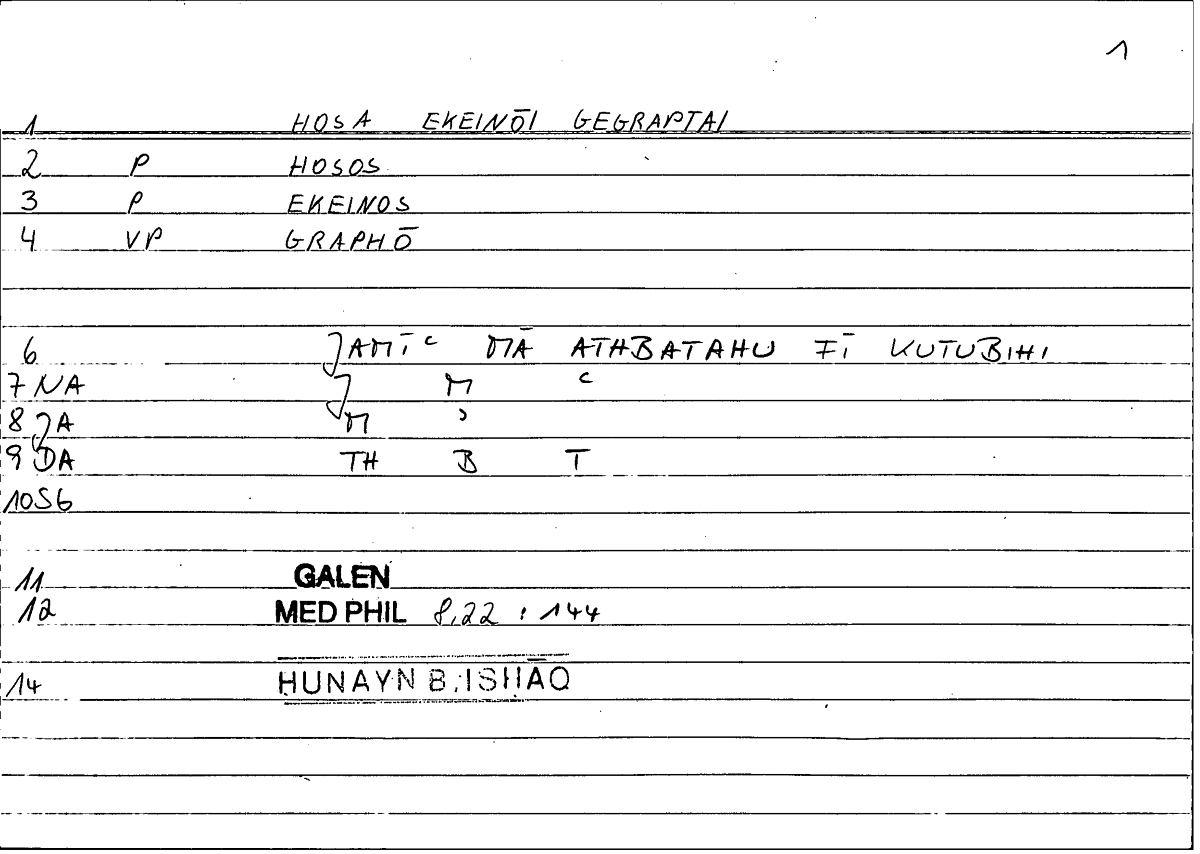 1
1 HOSA EKEINŌI GEGRAPTAI
2 P HOSOS
3 P EKEINOS
4 VP GRAPHŌ
6 JAMĪʿ MĀ ATHBATAHU FĪ KUTUBIHI
7 NA J M ʿ
8 JA M ʾ
9 DA TH B T
10 S6
11 GALEN
12 MED PHIL 8,22 : 144
14 HUNAYN B. ISḤĀQ